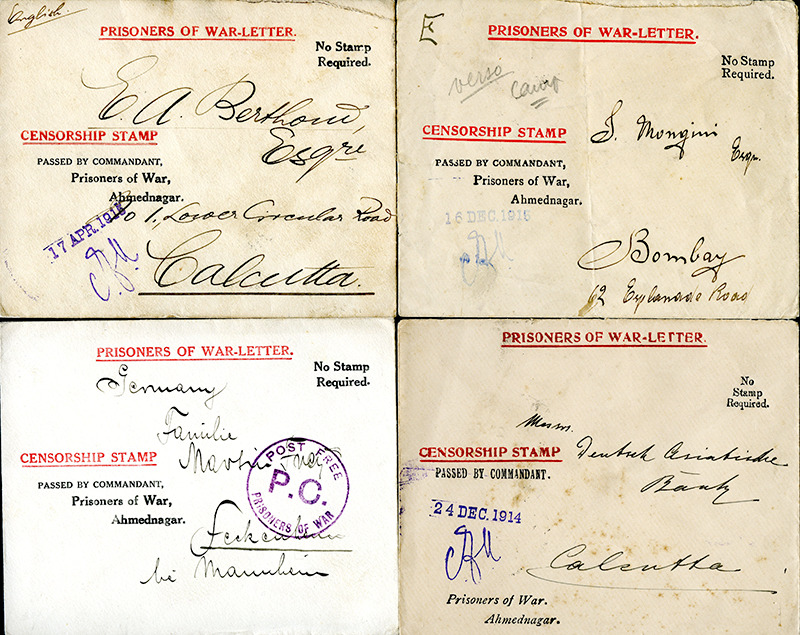 English.
PRISONERS OF WAR-LETTER.
No Stamp
Required.
E. A. Berthoud,
Esqre
CENSORSHIP STAMP
PASSED BY COMMANDANT,
Prisoners of War,
Ahmednagar.
No 1, Lower Circular Road
17 APR. 1915
Calcutta.
E
PRISONERS OF WAR-LETTER.
No Stamp
Required.
verso
Cairo
CENSORSHIP STAMP
J. Mongini
Esqr.
PASSED BY COMMANDANT,
Prisoners of War,
Ahmednagar.
16 DEC. 1915
Bombay
62 Esplanade Road
PRISONERS OF WAR-LETTER.
No Stamp
Required.
Germany
Familie
Martin
CENSORSHIP STAMP
PASSED BY COMMANDANT,
Prisoners of War,
Ahmednagar.
POST FREE
P.C.
PRISONERS OF WAR
bei Mannheim
PRISONERS OF WAR-LETTER.
No
Stamp
Required.
Messrs.
CENSORSHIP STAMP
Deutsch Asiatische
Bank
PASSED BY COMMANDANT.
24 DEC. 1914
Calcutta
Prisoners of War.
Ahmednagar.